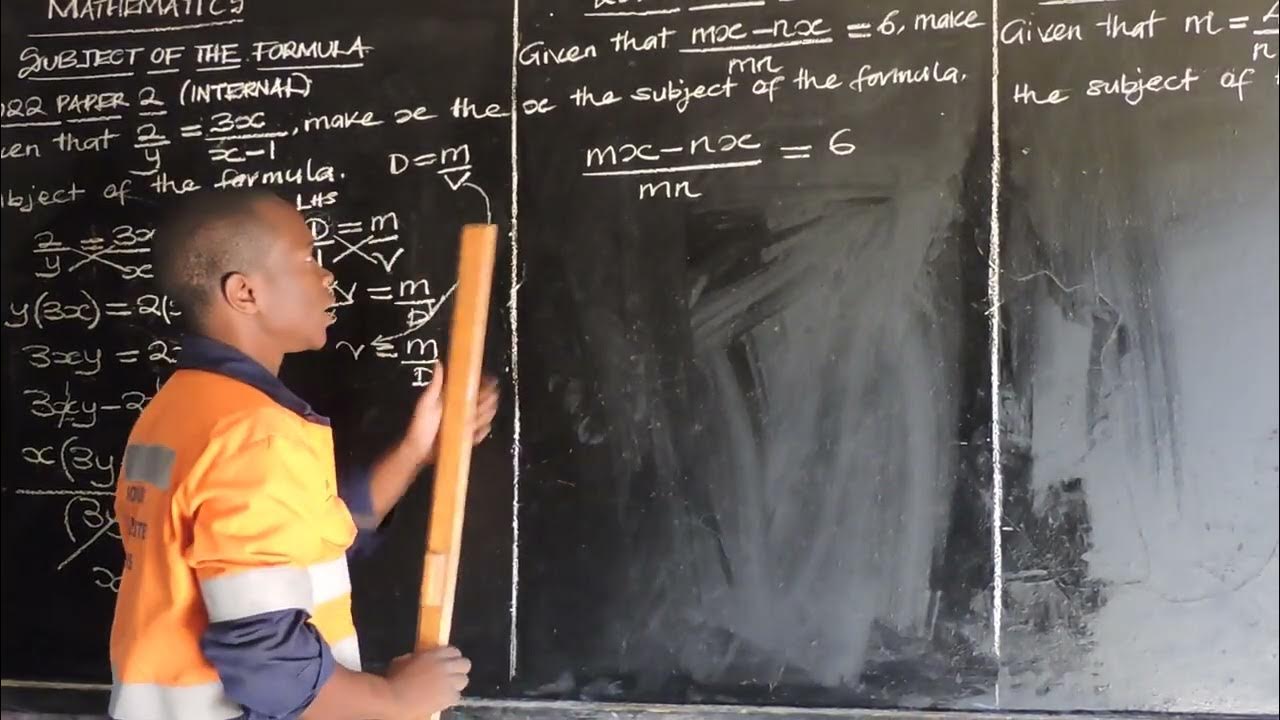 MATHEMATICS
SUBJECT OF THE FORMULA
022 PAPER 2 (INTERNAL)
en that 2/y = 3x/x-1, make x the
bject of the formula.
2/y = 3x/x
y(3x) = 2(
3xy = 2
3xy - 2
x(3y
(3y
x
D = m/V
LHS
D/1 = m/V
V = m/D
V = m/D
Given that mx-nx/mn = 6, make
x the subject of the formula.
mx-nx/mn = 6
Given that m =
n
the subject of